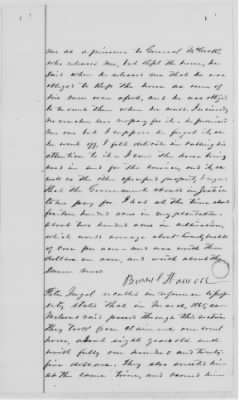 me as a prisoner to General McCook,
who released me, but kept the horse, he
said when he released me that he was
obliged to keep the horse as some of
his men were afoot, and he was obliged
to mount them when he could. I received
no voucher nor no pay for it. he promised
me one but I suppose he forgot it as
he went off, I felt delicate in calling his
attention to it. I want the horse being
used in and for the service, and it as
well as the other species of property I urge
that the Government should in justice
to me pay for. I had at the time about
fourteen hundred acres in my plantation
about two hundred acres in cultivation,
which would average about twenty bushels
of corn per acre and was worth then
dollars an acre, and worth about the
same now
Peter
called in reference to
states that in March, 1865 on
Wilsons raid passed through this section
They took from Claimant one
horse, about eight years old and
worth fully one hundred and twenty
five dollars. They also arrested him
at the same time, and carried him